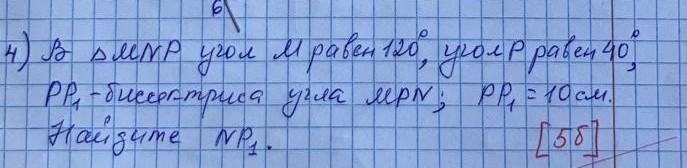 б
4) В △MNP угол M равен 120°, угол P равен 40°,
PP₁ - биссектриса угла MPN; PP₁ = 10 см.
Найдите NP₁. [5б]